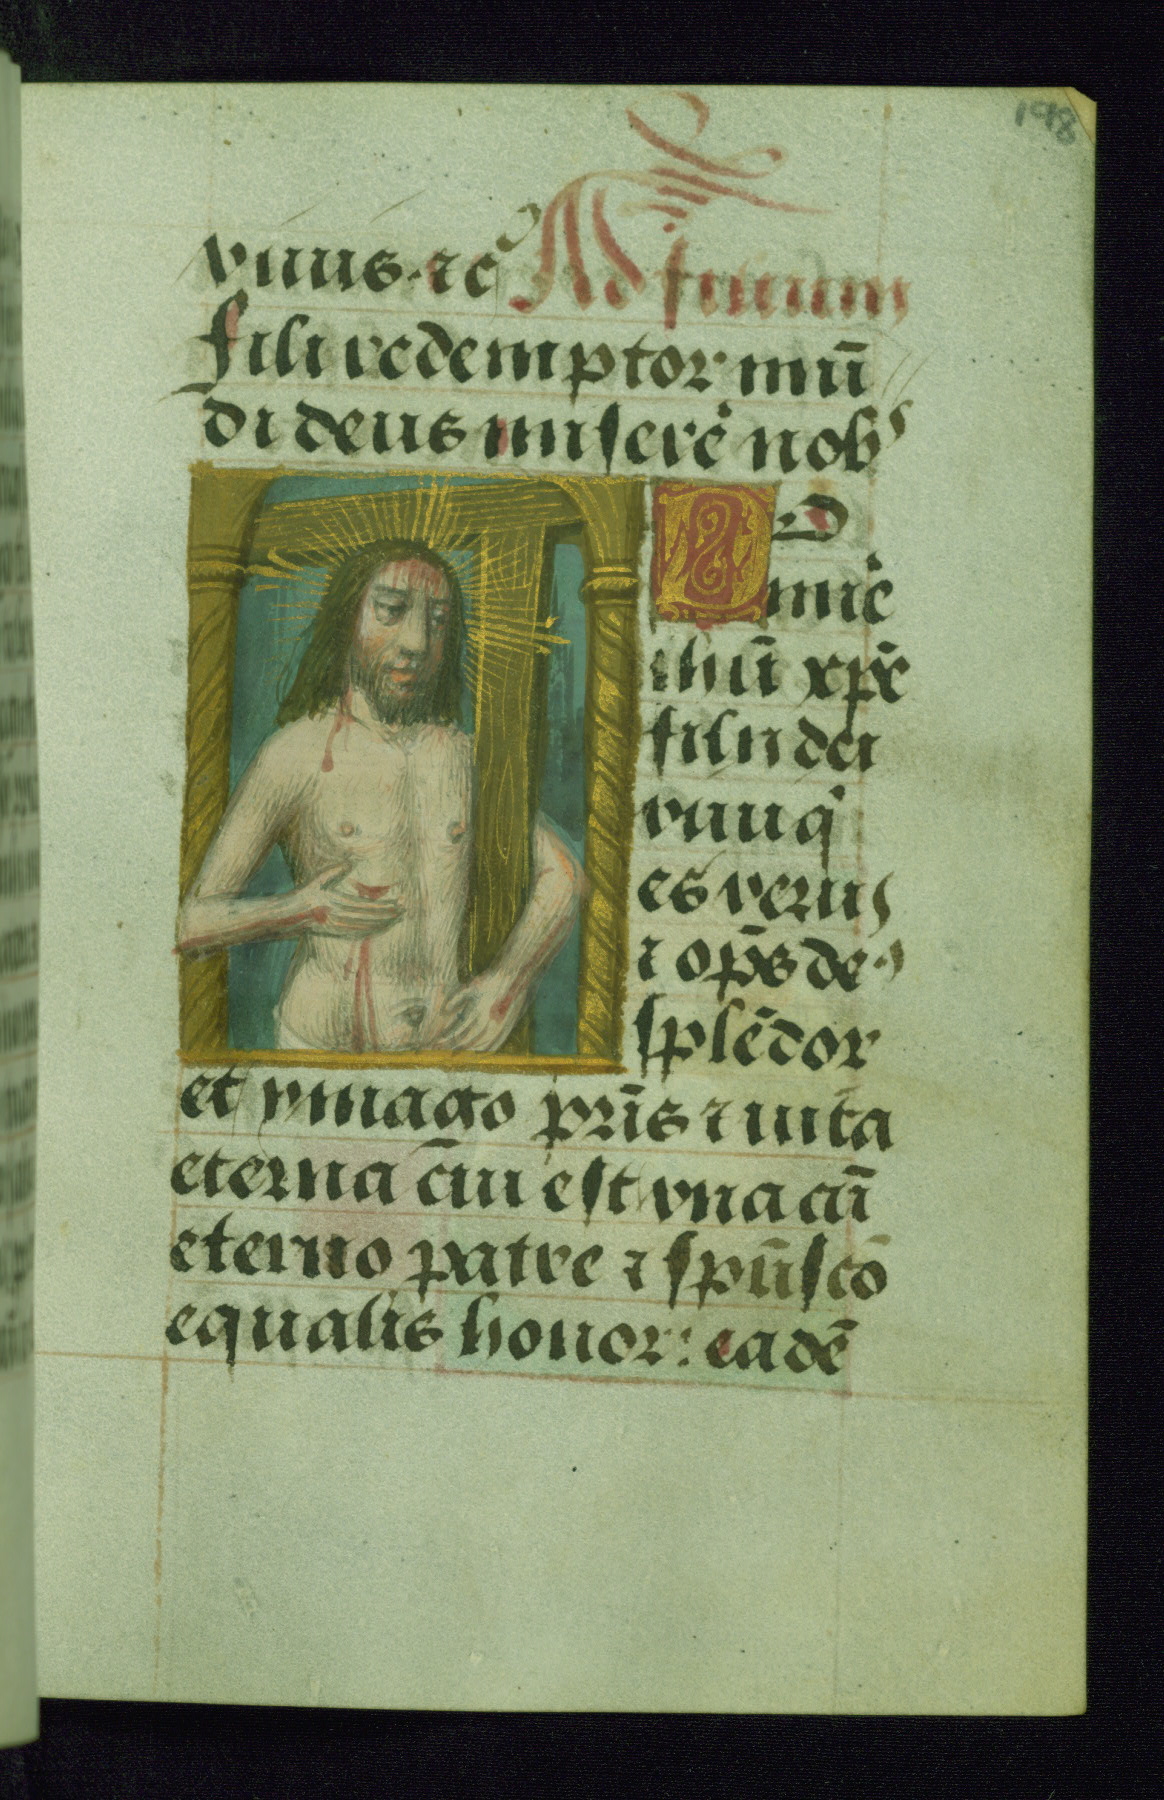 198
vnus· ⁊ cͦ Ad filium
fili redemptor mū
di deus miserē nobꝰ
Do
mīe
ihū xp̄e
filii dei
viui qͥ
es verus
⁊ op̄s de⁹
splēdor
et ymago pr̄is ⁊ uita
eterna cūi est vna cū
eterno patre ⁊ spū scō
equalis honor: eadē